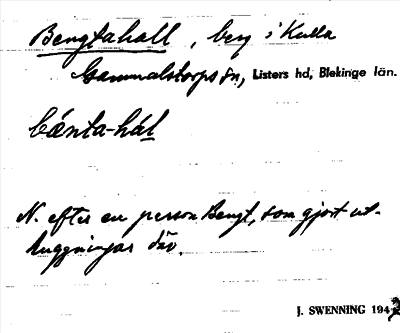 Bengtahall, berg i Kulla
Gammalstorps sn, Listers hd, Blekinge län.
bæ̀nta-hál
N. efter en person Bengt, som gjort ut-
huggningar där.
J. SWENNING 194